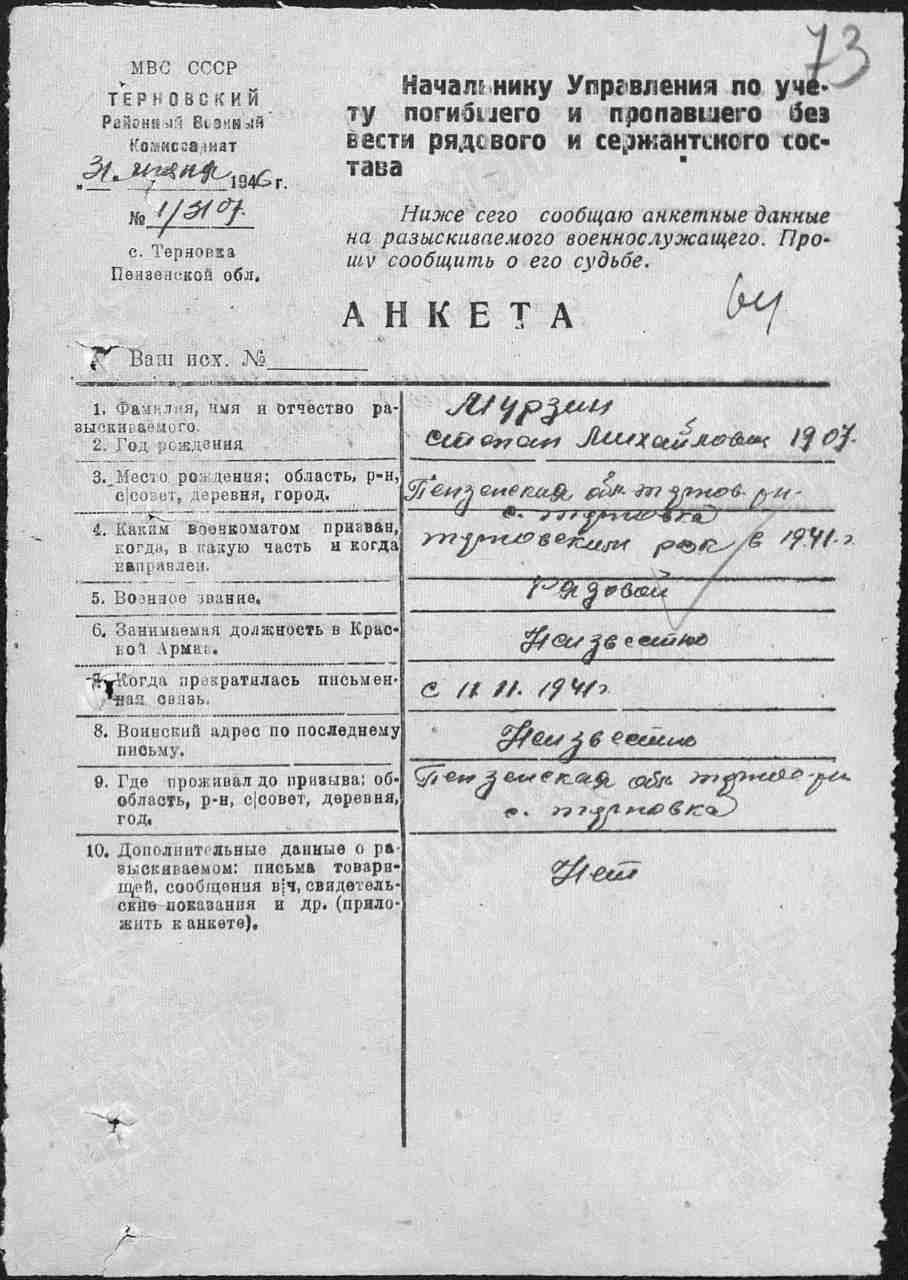 73
МВС СССР
ТЕРНОВСКИЙ
Районный Военный
Комиссариат
„31“ 1946 г.
№ 1/3107
с. Терновка
Пензенской обл.
Начальнику Управления по уче-
ту погибшего и пропавшего без
вести рядового и сержантского сос-
тава
Ниже сего сообщаю анкетные данные
на разыскиваемого военнослужащего. Про-
шу сообщить о его судьбе.
АНКЕТА
Ваш исх. №
1. Фамилия, имя и отчество ра-
зыскиваемого.
Мурзин
2. Год рождения
Степан Михайлович 1907.
3. Место рождения; область, р-н,
с|совет, деревня, город.
Пензенская обл. Тернов. р-н
с. Терновка
4. Каким военкоматом призван,
когда, в какую часть и когда
направлен.
Терновским рвк в 1941 г
5. Военное звание.
Рядовой
6. Занимаемая должность в Крас-
ной Армии.
Неизвестно
7. Когда прекратилась письмен-
ная связь.
с 11.11.1941 г
8. Воинский адрес по последнему
письму.
Неизвестно
9. Где проживал до призыва: об-
область, р-н, с|совет, деревня,
год.
Пензенская обл. р-н
с. Терновка
10. Дополнительные данные о ра-
зыскиваемом: письма товари-
щей, сообщения в|ч, свидетель-
ские показания и др. (прило-
жить к анкете).
Нет
ПАМЯТЬ
НАРОДА
ПАМЯТЬ
НАРОДА